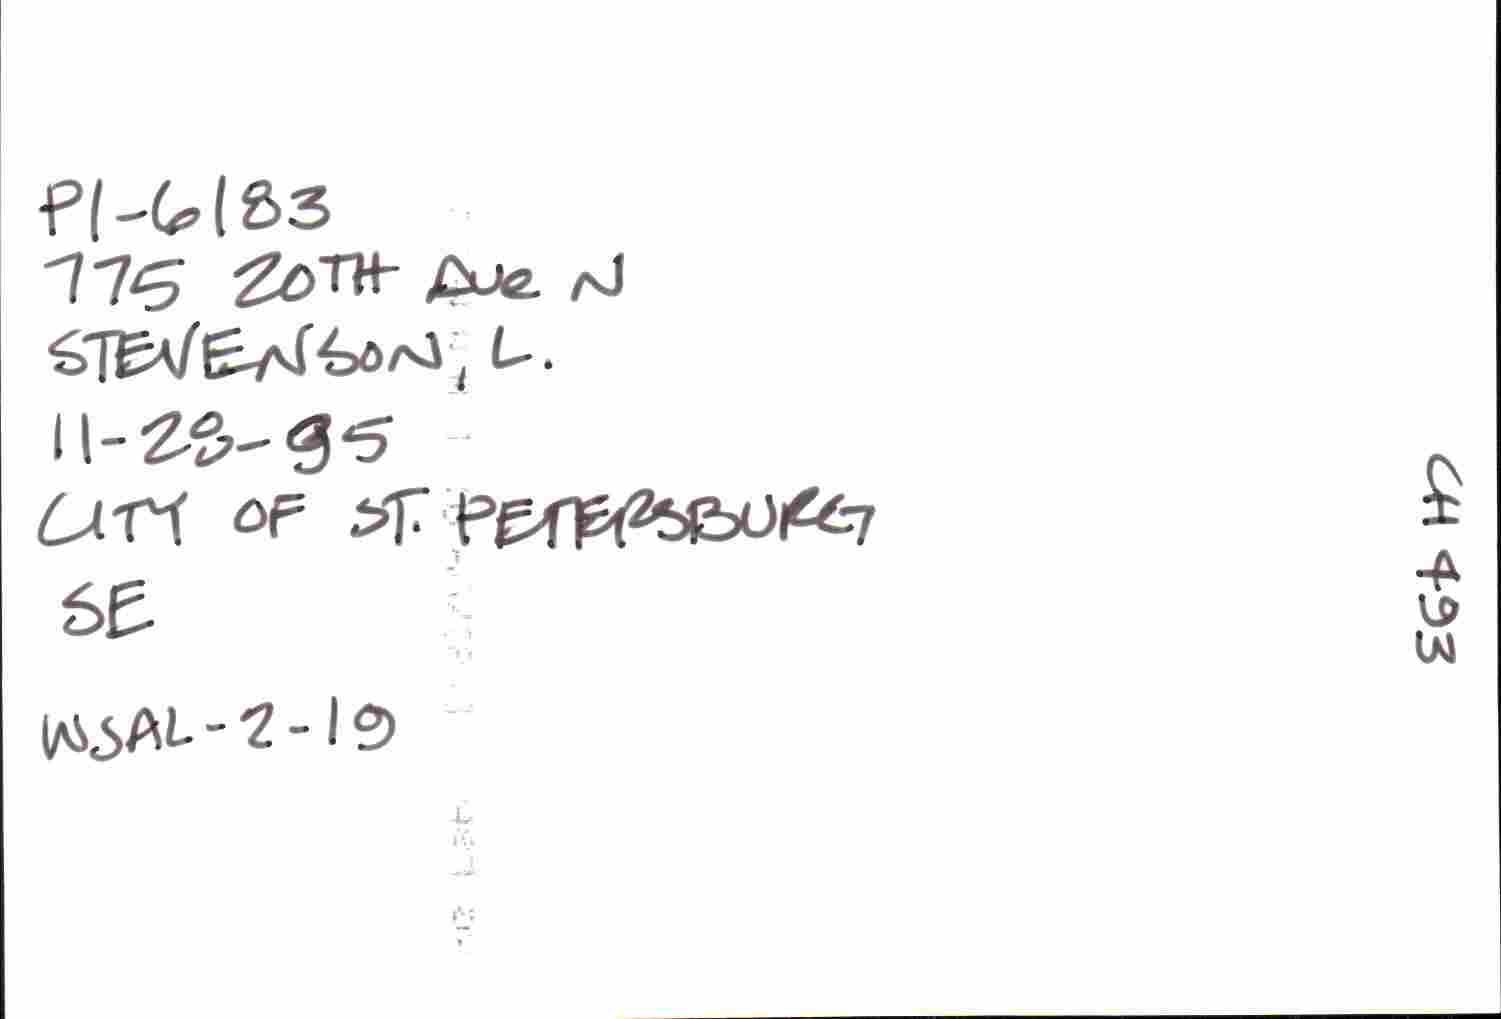 PI-6183
775 20TH Ave N
STEVENSON, L.
11-28-95
CITY OF ST. PETERSBURG
SE
WSAL-2-19
CH 493